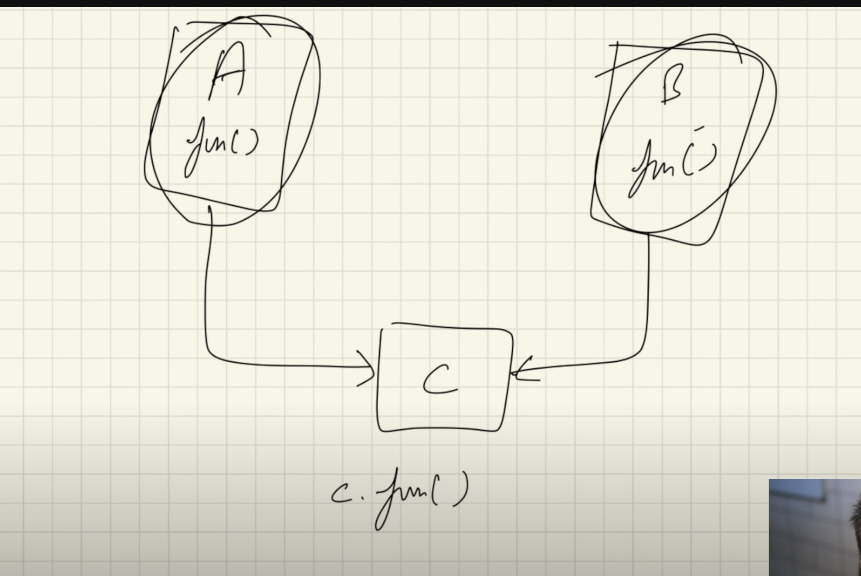 A
fun()
B
fun()
C
c.fun()